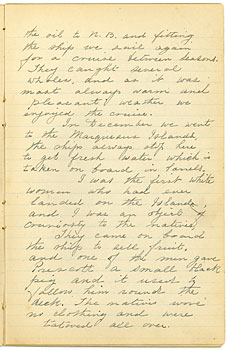 the oil to N.B. and fitting
the ship we sail again
for a cruise between seasons.
They caught several
whales, and as it was
most always warm and
pleasant weather we
enjoyed the cruise.
In December we went
to the Marquesas Islands,
the ships always stop here
to get fresh water which is
taken on board in barrels,
I was the first white
woman who had ever
landed on the Islands,
and I was an object of
curiosity to the natives.
They came on board
the ship to sell fruit,
and one of the men gave
Prescott a small black
pig and it used to
follow him round the
deck. The natives wore
no clothing and were
tatooed all over.